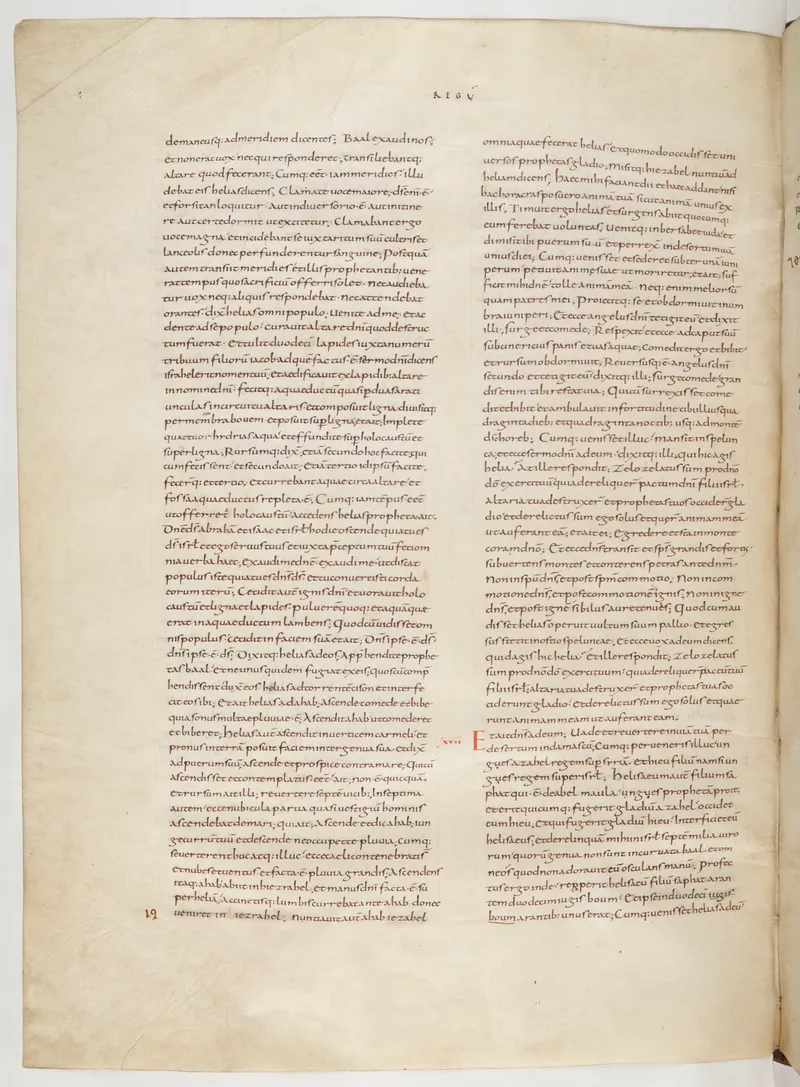 REGŪ
de mane usq: ad meridiem dicentes; Baal exaudi nos;
et non erat uox nec qui responderet, transiliebantq:
altare quod fecerant; Cumq: eēt iam meridies illu
debat eis helias dicens; Clamate uoce maiore, ds enī ē
et forsitan loquitur. Aut in diuersorio ē aut in itine
re aut certe dormit ut excitetur; Clamabant ergo
uoce magna et incidebant se iuxta ritum suū cultris et
lanceolis donec perfunderentur sanguine; Postquā
autem transiit meridies et illis prophetantib: uene
rat tempus quo sacrificiū offerri solet. nec audieba
tur uox neq: aliquis respondebat. nec attendebat
orantes; dix helias omni populo; Uenite ad me; et ac
dente ad se populo curauit altare dnī quod destruc
tum fuerat; Et tulit duodecī lapides iuxta numerū
tribuum filiorū iacob ad quē factus ē sermo dnī dicens
israhel erit nomen tuū, et aedificauit ex lapidib: altare
in nomine dnī; fecitq: aquaeductū quasi p duas arati
unculas in circuitu altaris et composuit ligna diuisitq:
per membra bouem et posuit sup ligna, et ait; Implete
quattuor hydrias aqua et effundite sup holocaustū et
super ligna; Rursumq: dix; etiā secundo hoc facite; qui
cum fecissent et secundo ait; Etiā tertio idipsū facite,
fecerq: tertio, et currebant aquae circa altare et
fossa aquaeductus repleta ē; Cumq: iam tēpus eēt
ut offerret holocaustū accedens helias propheta ait;
Dnē ds abrahā et isaac et isrl hodie ostende quia tu es
ds isrl et ego seruus tuus et iuxta pceptum tuū feci om
nia uerba haec, exaudi me dnē exaudi me ut discat
populus iste quia tu es dns ds et tu conuertisti corda
eorum iterū; Cecidit autē ignis dnī et uorauit holo
caustū et ligna et lapides puluerē quoq: et aquā quae
erat in aquaeductu lambens; Quod cū uidisset om
nis populus cecidit in faciem suā et ait; Dns ipse ē ds
dns ipse ē ds; Dixitq: helias ad eos; Apphendite prophe
tas baal. et ne unus quidem fugiat ex eis; quos cū comp
hendissent dux eos helias ad torrentē cison et interfe
cit eos ibi; Et ait helias ad ahab; Ascende comede et bibe
quia sonus multae pluuiae ē; Ascendit ahab ut comederet
et biberet; helias aut ascendit in uerticem carmeli et
pronus in terrā posuit faciem inter genua sua et dix
ad puerum suū; ascende et prospice contra mare; Qui cū
ascendisset et contemplatus eēt ait, non ē quicquā.
Et rursum ait illi; reuertere septē uicib; In septima
autem ecce nubicula parua quasi uestigiū hominis
ascendebat de mari; qui ait; Ascende et dic ahab; iun
ge currū tuū et descende ne occupet te pluuia; cumq:
se uerteret huc atq: illuc ecce caeli contenebrati s
et nubes et uentus et facta ē pluuia grandis; Ascendens
itaq: ahab abiit in hiezrahel, et manus dnī facta ē sū
per heliā, accinctisq: lumbis currebat ante ahab donec
19
ueniret in iezrahel; nuntiauit aut ahab iezabel
omnia quae fecerat helias et quomodo occidisset uni
uersos prophetas gladio, misitq: hiezabel nuntiū ad
heliam dicens; haec mihi faciant dii et haec addant nisi
hac hora cras posuero animā tuā sicut animā unius ex
illis; Timuit ergo helias et surgens abiit quocumq:
eum ferebat uoluntas; Uenitq: in bersabee iuda et
dimisit ibi puerum suū et perrex in desertum uiā
unius diei; Cumq: uenisset et sederet subter unā iuni
perum petiuit animae suae ut moreretur, et ait; suf
ficit mihi dnē tolle animā meā. Neq: enim melior sū
quam patres mei; Proiecitq: se et obdormiuit in um
bra iuniperi; Et ecce angelus dnī tetigit eū et dixit
illi; surge et comede; Respexit et ecce ad caput suū
subcinericius panis et uas aquae; Comedit ergo et bibit
et rursum obdormiuit; Reuersusq: ē angelus dnī
secundo et tetigit eū dixitq: illi; surge comede gran
dis enim tibi restat uia; Qui cū surrexisset come
dit et bibit et ambulauit in fortitudine cibi illius qua
draginta dieb: et quadraginta noctib: usq: ad monte
dī horeb; Cumq: uenisset illuc mansit in spelun
ca, et ecce sermo dnī ad eum dixitq: illi; quid hic agis
helia; At ille respondit; Zelo zelatus sum pro dnō
dō exercituū quia dereliquer pactum dnī filii isrl.
Altaria tua destruxer et prophetas tuos occider gla
dio et derelictus sum ego solus et quer animam meā
ut auferant eā; et ait ei; Egredere et sta in monte
coram dnō; Et ecce dns transit et sps grandis et fortis
subuertens montes et conterens petras ante dnm.
Non in spū dns, et post spm commotio; Non in com
motione dns, et post commotionē ignis; Non in igne
dns, et post ignē sibilus aurae tenuis; Quod cum au
disset helias operuit uultum suum pallio. et egres
sus stetit in ostio speluncae, et ecce uox ad eum dicens;
quid agis hic helia; et ille respondit; Zelo zelatus
sum pro dnō dō exercituum quia dereliquer pactū tuū
filii isrl; altaria tua destruxer et prophetas tuos oc
ciderunt gladio; et derelictus sum ego solus et quae
runt animam meam ut auferant eam.
XVII Et ait dns ad eum; Uade et reuertere in uiā tuā per
desertum in damascū; Cumq: perueneris illuc un
gues azahel regem sup syriā. et hieu filiū namsi un
gues regem sup isrl; heliseū aut filium sa
phat qui ē de abel maula ungues prophetā pro te;
et erit quicumq: fugerit gladiū azahel occidet
eum hieu; et qui fugerit gladiū hieu interficiet eū
heliseus; et derelinquā mihi in isrl septē milia uiro
rum quorū genua non sunt incuruata baal. et om
ne os quod non adorauit eū osculans manū; profec
tus ergo inde repperit heliseū filiū saphat aran
tem duodecim iugis boum; Et ipse in duodecī iugis
boum arantib: unus erat; Cumq: uenisset helias ad eū